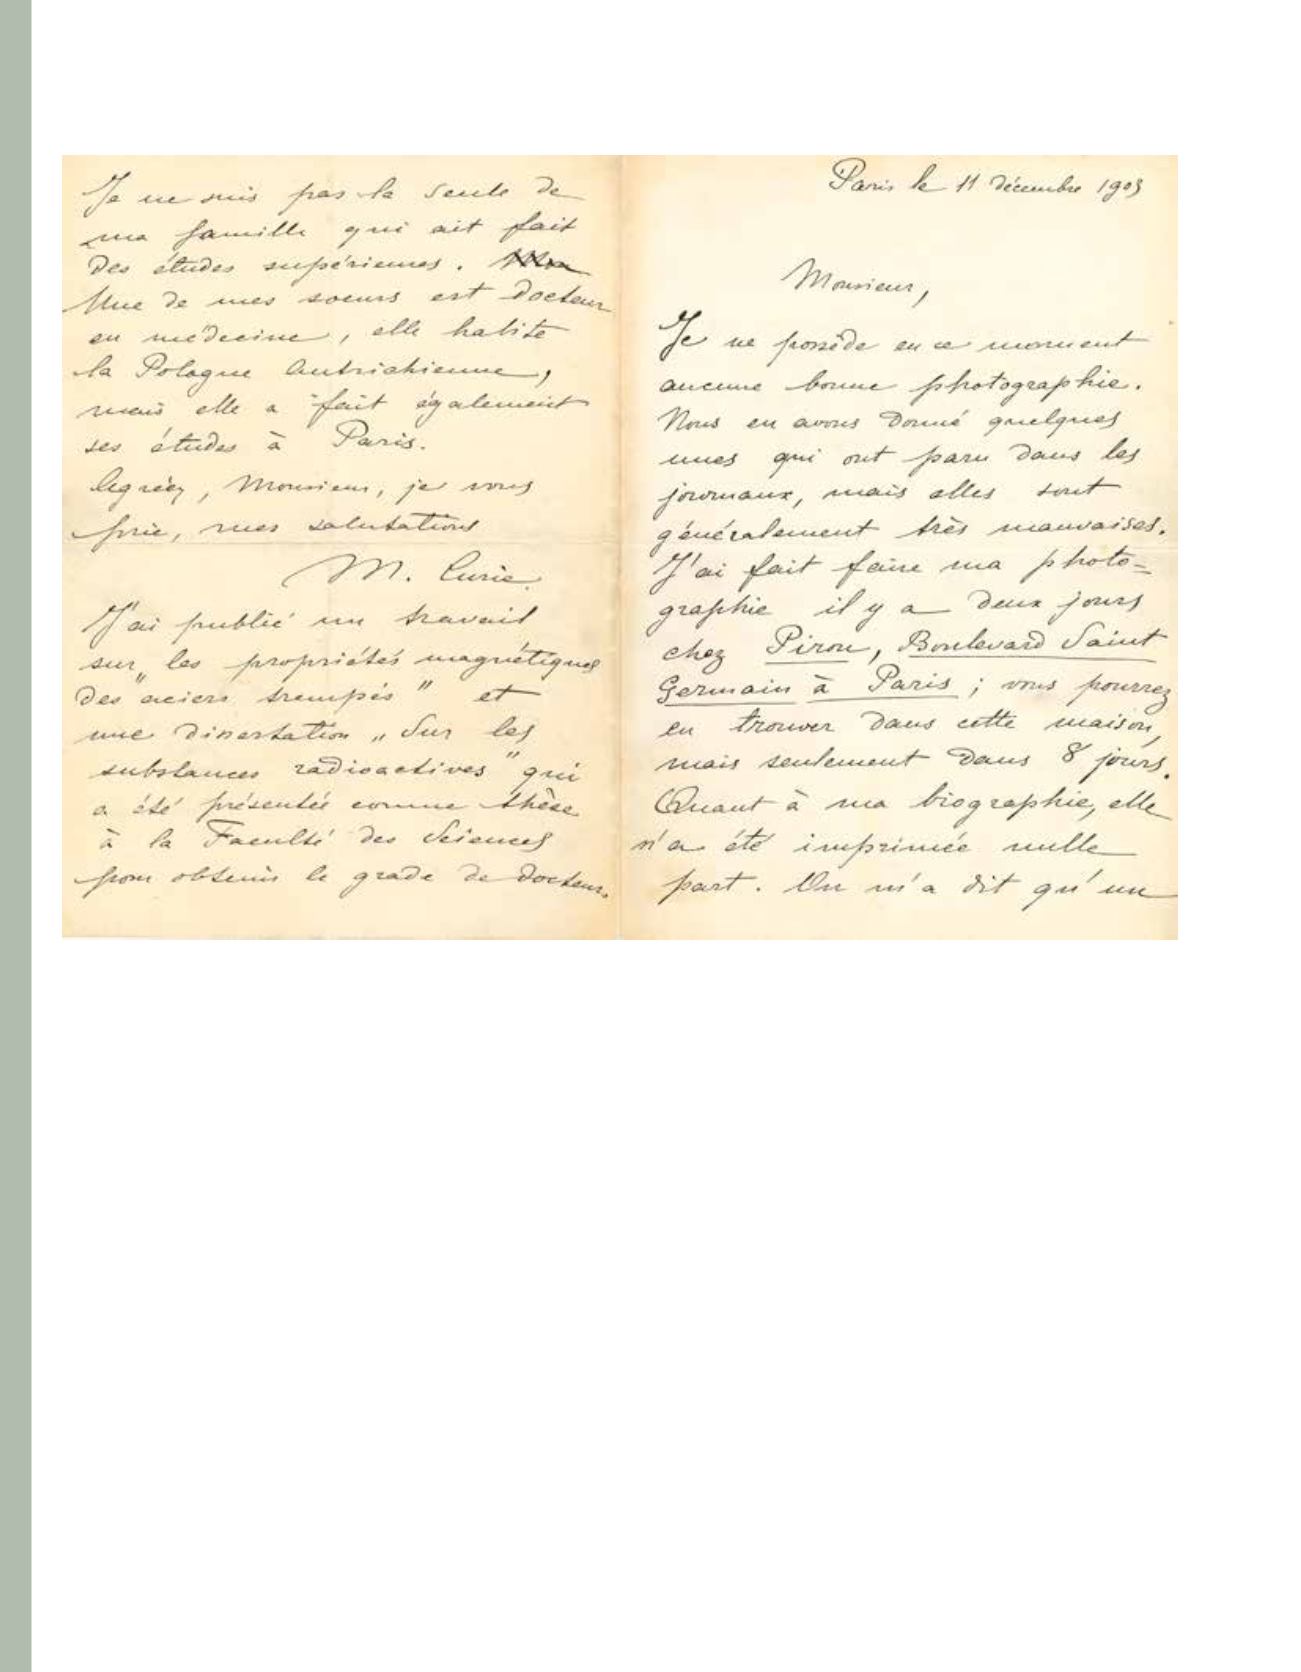 Paris le 11 décembre 1903
Monsieur,
Je ne possède en ce moment
aucune bonne photographie.
Nous en avons donné quelques
unes qui ont paru dans les
journaux, mais elles sont
généralement très mauvaises.
J'ai fait faire ma photo=
graphie il y a deux jours
chez Pirou, Boulevard Saint
Germain à Paris ; vous pourrez
en trouver dans cette maison,
mais seulement dans 8 jours.
Quant à ma biographie, elle
n'a été imprimée nulle
part. On m'a dit qu'un
Je ne suis pas la seule de
ma famille qui ait fait
des études supérieures.
Une de mes soeurs est docteur
en médecine, elle habite
la Pologne Autrichienne,
mais elle a fait également
ses études à Paris.
Agréez, Monsieur, je vous
prie, mes salutations
M. Curie.
J'ai publié un travail
sur „les propriétés magnétiques
des aciers trempés" et
une dissertation „Sur les
substances radioactives" qui
a été présentée comme thèse
à la Faculté des Sciences
pour obtenir le grade de docteur.